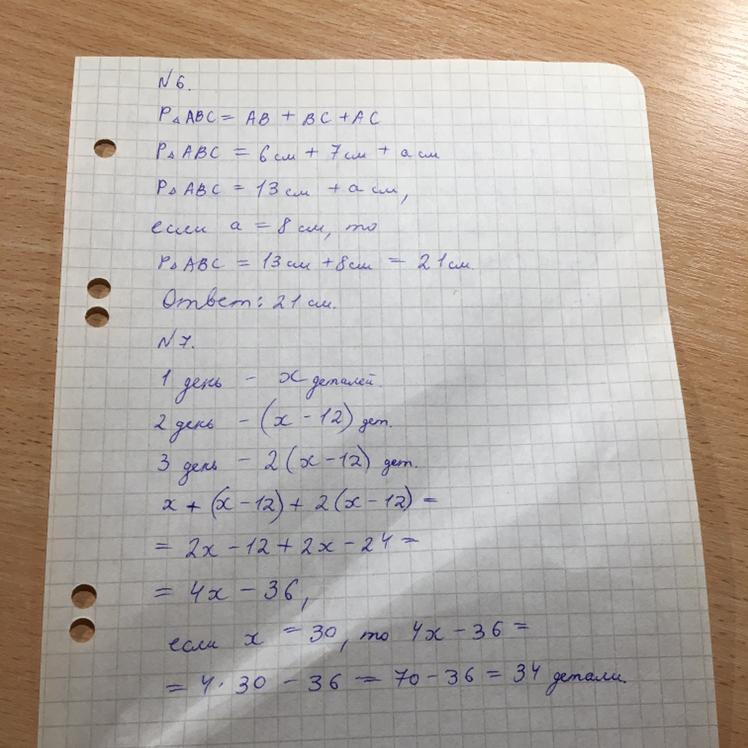 №6.
P△ABC = AB + BC + AC
P△ABC = 6 см + 7 см + a см
P△ABC = 13 см + a см,
если a = 8 см, то
P△ABC = 13 см + 8 см = 21 см.
Ответ: 21 см.
№7.
1 день - x деталей.
2 день - (x - 12) дет.
3 день - 2(x - 12) дет.
x + (x - 12) + 2(x - 12) =
= 2x - 12 + 2x - 24 =
= 4x - 36,
если x = 30, то 4x - 36 =
= 4 · 30 - 36 = 70 - 36 = 34 детали.